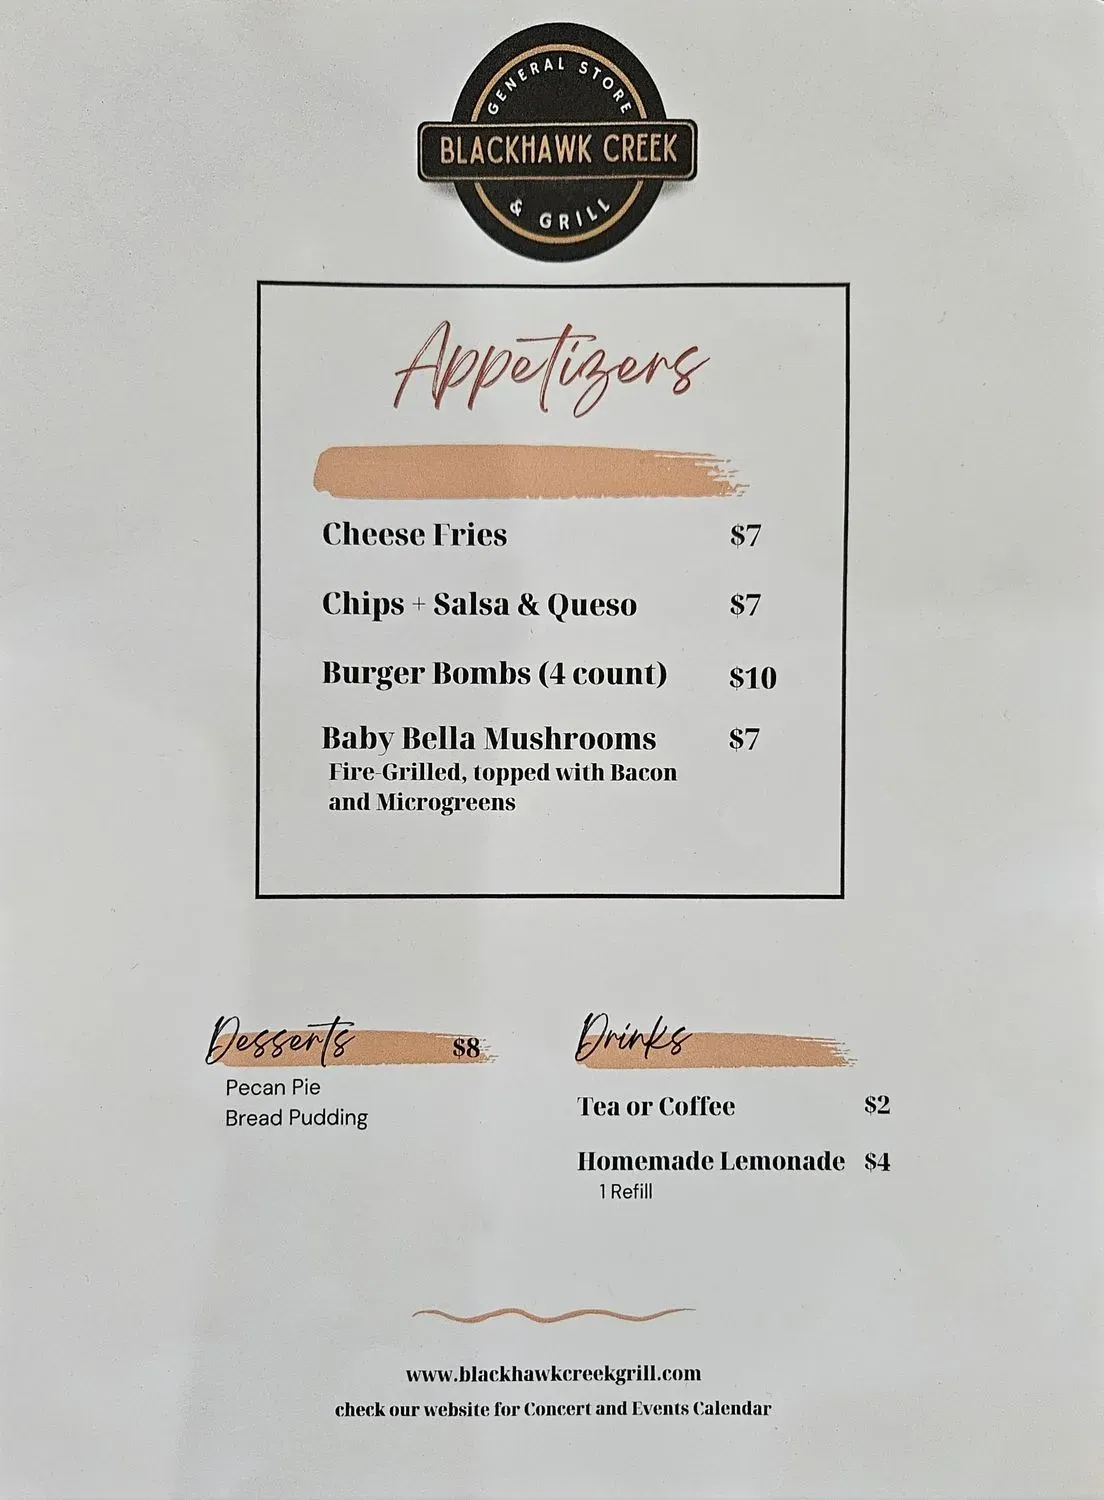 GENERAL STORE
BLACKHAWK CREEK
& GRILL
Appetizers
Cheese Fries $7
Chips + Salsa & Queso $7
Burger Bombs (4 count) $10
Baby Bella Mushrooms $7
Fire-Grilled, topped with Bacon
and Microgreens
Desserts $8
Pecan Pie
Bread Pudding
Drinks
Tea or Coffee $2
Homemade Lemonade $4
1 Refill
www.blackhawkcreekgrill.com
check our website for Concert and Events Calendar